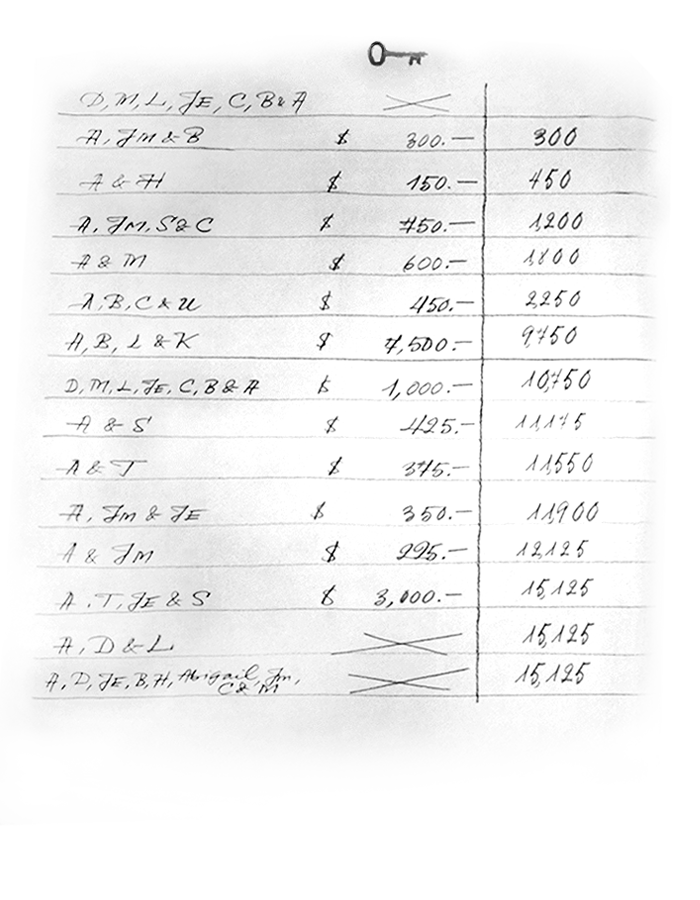 D, M, L, JE, C, B & A
A, JM & B $ 300.— 300
A & H $ 150.— 450
A, JM, S & C $ 750.— 1,200
A & M $ 600.— 1,800
A, B, C & U $ 450.— 2,250
A, B, L & K $ 7,500.— 9,750
D, M, L, JE, C, B & A $ 1,000.— 10,750
A & S $ 425.— 11,175
A & T $ 375.— 11,550
A, JM & JE $ 350.— 11,900
A & JM $ 225.— 12,125
A, T, JE & S $ 3,000.— 15,125
A, D & L 15,125
A, D, JE, B, H, Abigail, Jm, 15,125
C & M